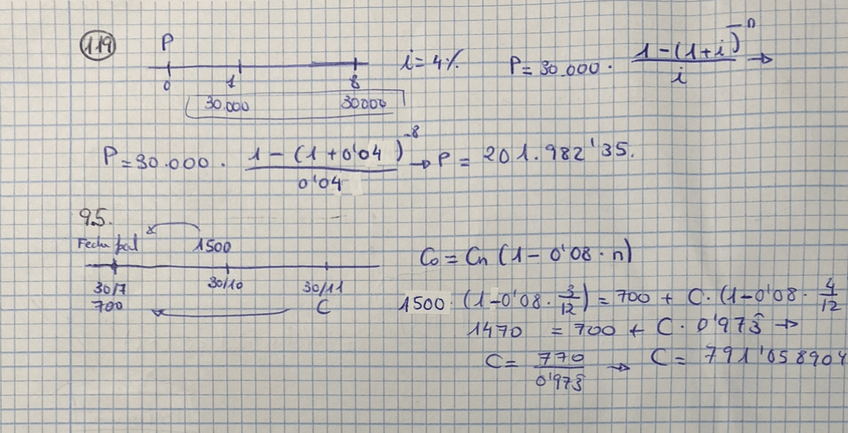 119 P
0 1 8 i=4% P=30.000 · 1-(1+i)^-n / i →
30.000 30000
P=30.000 · 1-(1+0'04)^-8 / 0'04 → P = 201.982'35.
95.
Fecha foal 1500
30/7 30/10 30/11
700 C
C₀ = Cn (1-0'08 · n)
1500 · (1-0'08 · 3/12) = 700 + C · (1-0'08 · 4/12
1470 = 700 + C · 0'973̂ →
C = 770 / 0'973̂ → C = 791'058904